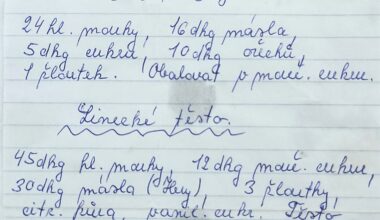 24 hl. mouky, 16 dkg másla,
5 dkg cukru, 10 dkg ořechů,
1 žloutek. Obalovat v mouč. cukru.
Linecké těsto.
45 dkg hl. mouky, 12 dkg mouč. cukru,
30 dkg másla (Hery), 3 žloutky,
citr. kůra, vanil. cukr. Těsto